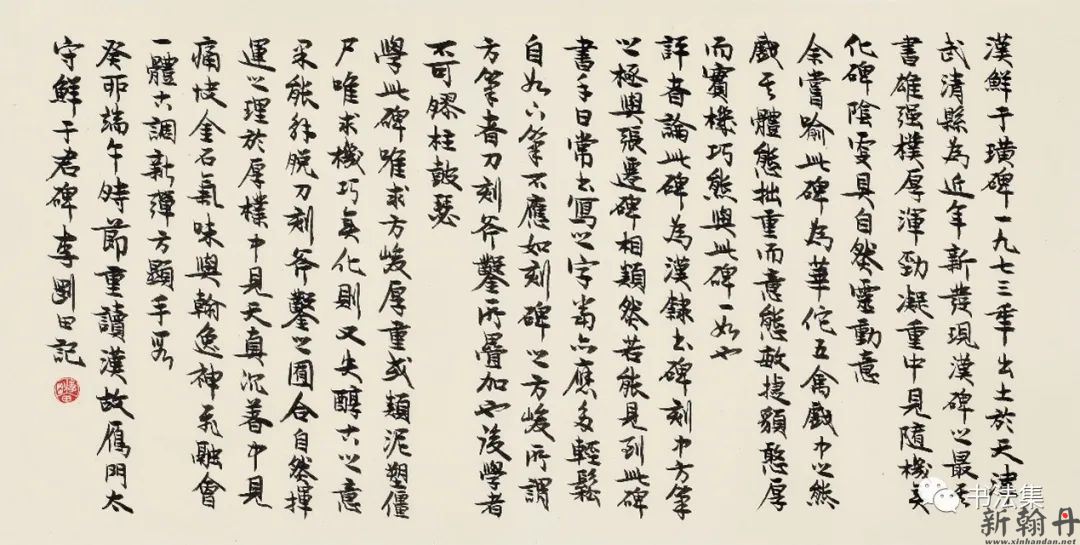 漢鮮于璜碑一九七三年出土於天津
武清縣為近年新發現漢碑之最其
書雄强樸厚渾勁凝重中見隨機變
化碑陰更具自然靈動意
余嘗喻此碑為華佗五禽戲中之熊
戲其體態拙重而意態敏捷額憨厚
而實機巧熊與此碑一如也
評者論此碑為漢隸書碑刻中方筆
之極與張遷碑相類然若能見到此碑
書手日常書寫之字當亦應多輕鬆
自如下筆不應如刻碑之方峻所謂
方筆者刀刻斧鑿所疊加也後學者
不可膠柱鼓瑟
學此碑唯求方峻厚重或類泥塑僵
尸唯求機巧變化則又失醇古之意
采能解脱刀刻斧鑿之囿合自然揮
運之理於厚樸中見天真沉著中見
痛快金石氣味與翰逸神飛融會
一體古調新彈方顯手段
癸卯端午時節重讀漢故鴈門太
守鮮于君碑李劉田記
书法集
新翰丹
www.xinhandan.net